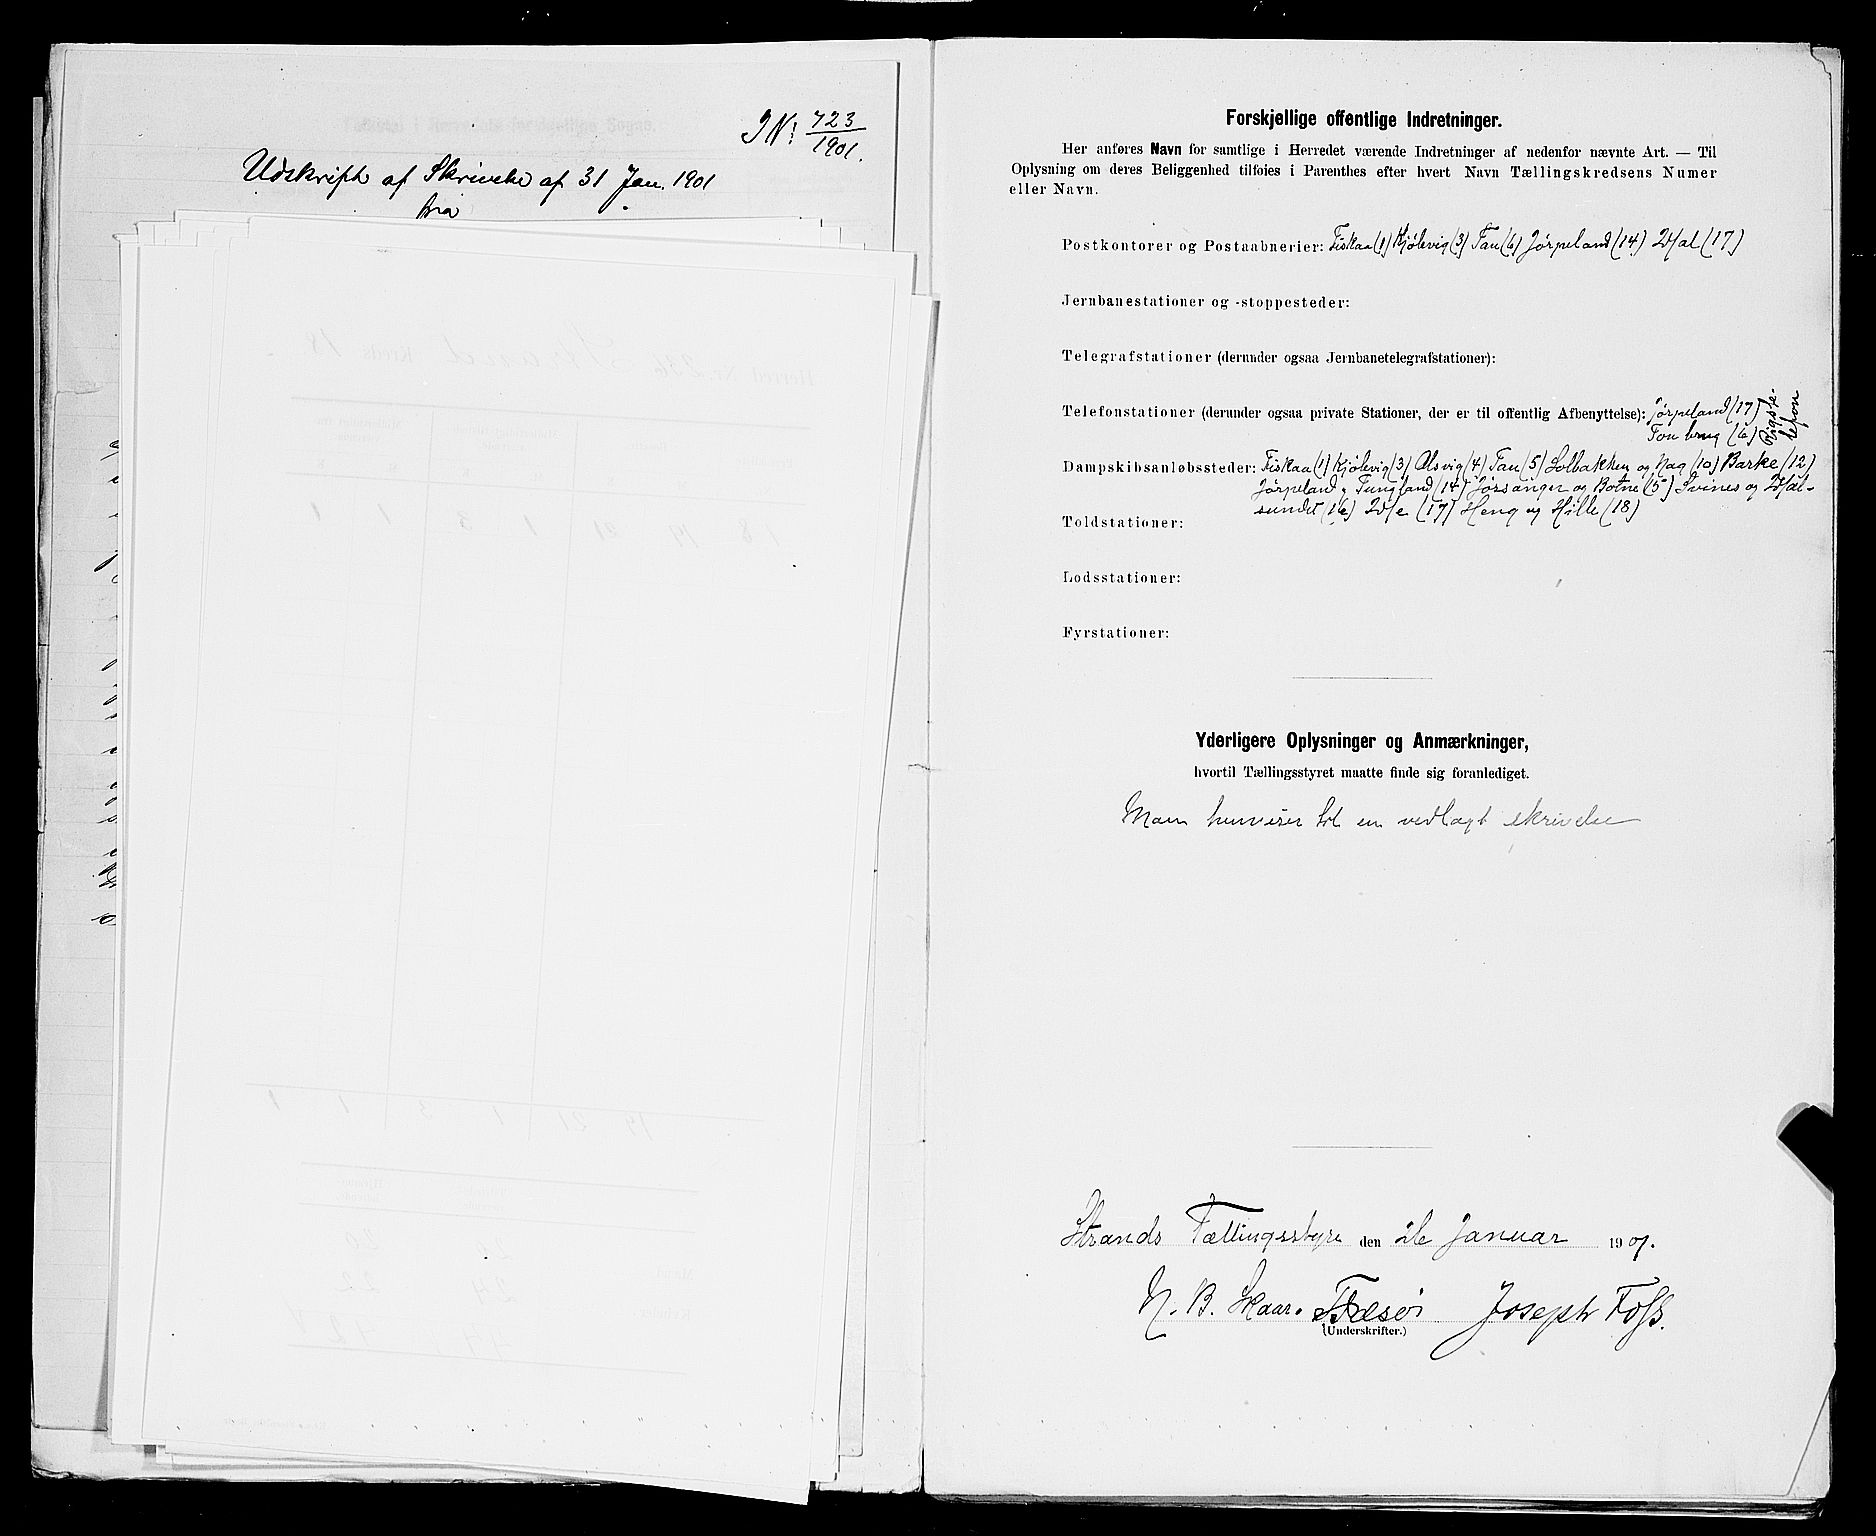 JN: 723/1901.
Udskrift af Skrivelse af 31 Jan. 1901
fra
Forskjellige offentlige Indretninger.
Her anføres Navn for samtlige i Herredet værende Indretninger af nedenfor nævnte Art. — Til
Oplysning om deres Beliggenhed tilføies i Parenthes efter hvert Navn Tællingskredsens Numer
eller Navn.
Postkontorer og Postaabnerier: Fiskaa (1) Kjølevig (3) Tau (6) Jørpeland (14) (17)
Jernbanestationer og -stoppesteder:
Telegrafstationer (derunder ogsaa Jernbanetelegrafstationer):
Telefonstationer (derunder ogsaa private Stationer, der er til offentlig Afbenyttelse): Jørpeland (17)
Tou brug (6) Rigstelefon
Dampskibsanløbssteder: Fiskaa (1) Kjølevig (3) Alsvig (4) Tau (5) Solbakken og Nag (10) Barke (12)
Jørpeland, Tungland (14) Jørsanger og Botne (5) Svines og
sundet (16) (17) Heng og Hille (18)
Toldstationer:
Lodsstationer:
Fyrstationer:
Yderligere Oplysninger og Anmærkninger,
hvortil Tællingsstyret maatte finde sig foranlediget.
Man henviser til en vedlagt skrivelse
Strands Tællingsstyre den Januar 1901.
N. B. Skaar. Joseph Foss.
(Underskrifter.)
Herred Nr. 236 Strand Kreds 18